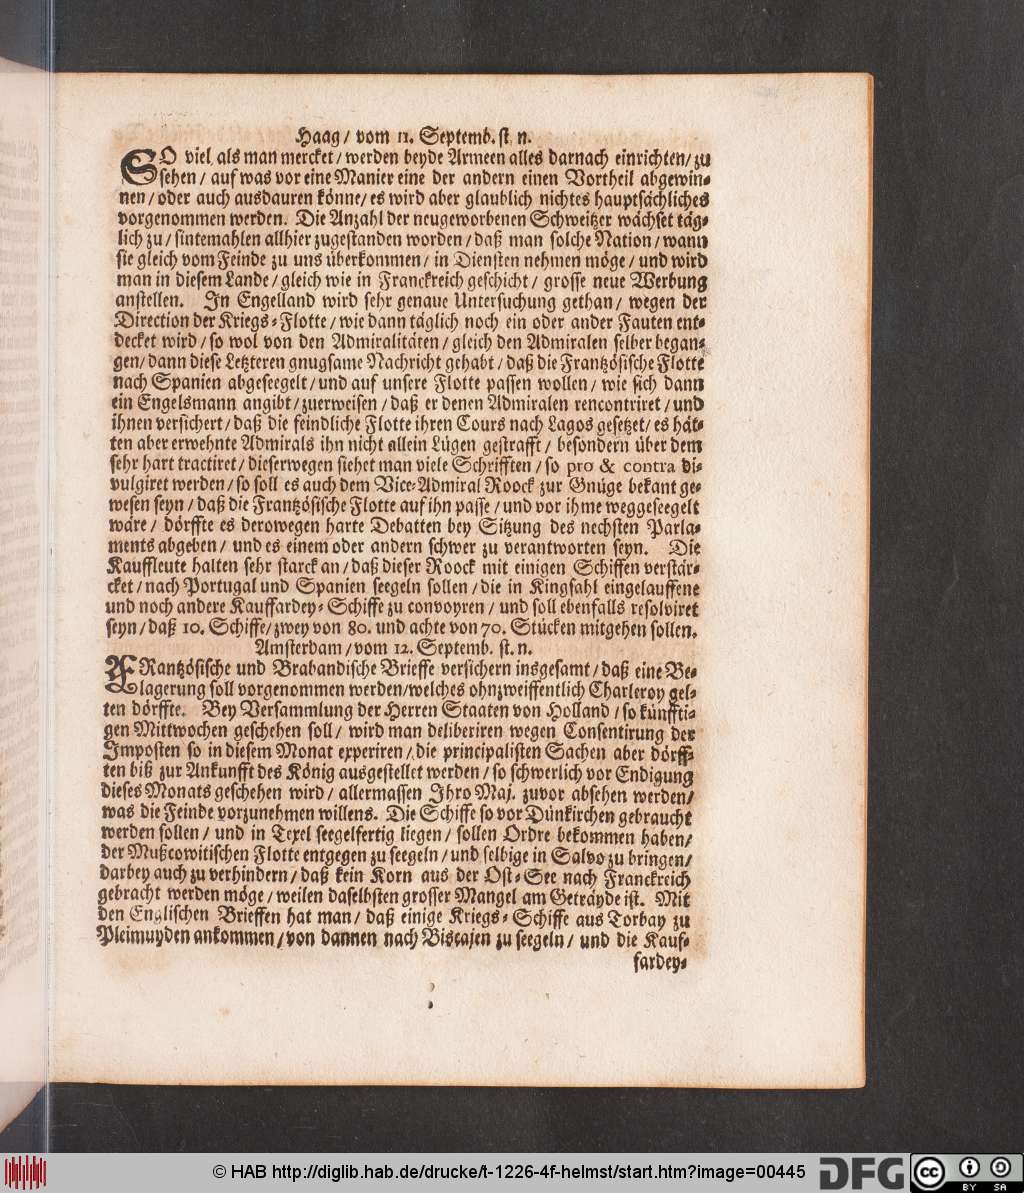 Haag / vom 11. Septemb. st. n.
SO viel als man mercket / werden beyde Armeen alles darnach einrichten / zu
sehen / auf was vor eine Manier eine der andern einen Vortheil abgewin-
nen / oder auch ausdauren könne / es wird aber glaublich nichtes hauptsächliches
vorgenommen werden. Die Anzahl der neugeworbenen Schweitzer wächset täg-
lich zu / sintemahlen allhier zugestanden worden / daß man solche Nation / wann
sie gleich vom Feinde zu uns überkommen / in Diensten nehmen möge / und wird
man in diesem Lande / gleich wie in Franckreich geschicht / grosse neue Werbung
anstellen. In Engelland wird sehr genaue Untersuchung gethan / wegen der
Direction der Kriegs-Flotte / wie dann täglich noch ein oder ander Fauten ent-
decket wird / so wol von den Admiralitäten / gleich den Admiralen selber began-
gen / dann diese Letzteren gnugsame Nachricht gehabt / daß die Frantzösische Flotte
nach Spanien abgeseegelt / und auf unsere Flotte passen wollen / wie sich dann
ein Engelsmann angibt / zuerweisen / daß er denen Admiralen rencontriret / und
ihnen versichert / daß die feindliche Flotte ihren Cours nach Lagos gesetzet / es hät-
ten aber erwehnte Admirals ihn nicht allein Lügen gestrafft / besondern über dem
sehr hart tractiret / dieserwegen siehet man viele Schrifften / so pro & contra di-
vulgiret werden / so soll es auch dem Vice-Admiral Roock zur Gnüge bekant ge-
wesen seyn / daß die Frantzösische Flotte auf ihn passe / und vor ihme weggeseegelt
wäre / dörffte es derowegen harte Debatten bey Sitzung des nechsten Parla-
ments abgeben / und es einem oder andern schwer zu verantworten seyn. Die
Kauffleute halten sehr starck an / daß dieser Roock mit einigen Schiffen verstär-
cket / nach Portugal und Spanien seegeln sollen / die in Kingsahl eingelauffene
und noch andere Kauffardey-Schiffe zu convoyren / und soll ebenfalls resolviret
seyn / daß 10. Schiffe / zwey von 80. und achte von 70. Stücken mitgehen sollen.
Amsterdam / vom 12. Septemb. st. n.
FRantzösische und Brabandische Brieffe versichern insgesamt / daß eine Be-
lagerung soll vorgenommen werden / welches ohnzweiffentlich Charleroy gel-
ten dörffte. Bey Versammlung der Herren Staaten von Holland / so künffti-
gen Mittwochen geschehen soll / wird man deliberiren wegen Consentirung der
Imposten so in diesem Monat experiren / die principalisten Sachen aber dörff-
ten biß zur Ankunfft des König ausgestellet werden / so schwerlich vor Endigung
dieses Monats geschehen wird / allermassen Ihro Maj. zuvor absehen werden /
was die Feinde vorzunehmen willens. Die Schiffe so vor Dünkirchen gebraucht
werden sollen / und in Texel seegelfertig liegen / sollen Ordre bekommen haben /
der Mußcowitischen Flotte entgegen zu seegeln / und selbige in Salvo zu bringen /
darbey auch zu verhindern / daß kein Korn aus der Ost-See nach Franckreich
gebracht werden möge / weilen daselbsten grosser Mangel am Geträyde ist. Mit
den Englischen Brieffen hat man / daß einige Kriegs-Schiffe aus Torbay zu
Pleimuyden ankommen / von dannen nach Biscajen zu seegeln / und die Kauf-
fardey-
© HAB http://diglib.hab.de/drucke/t-1226-4f-helmst/start.htm?image=00445
DFG
cc BY SA